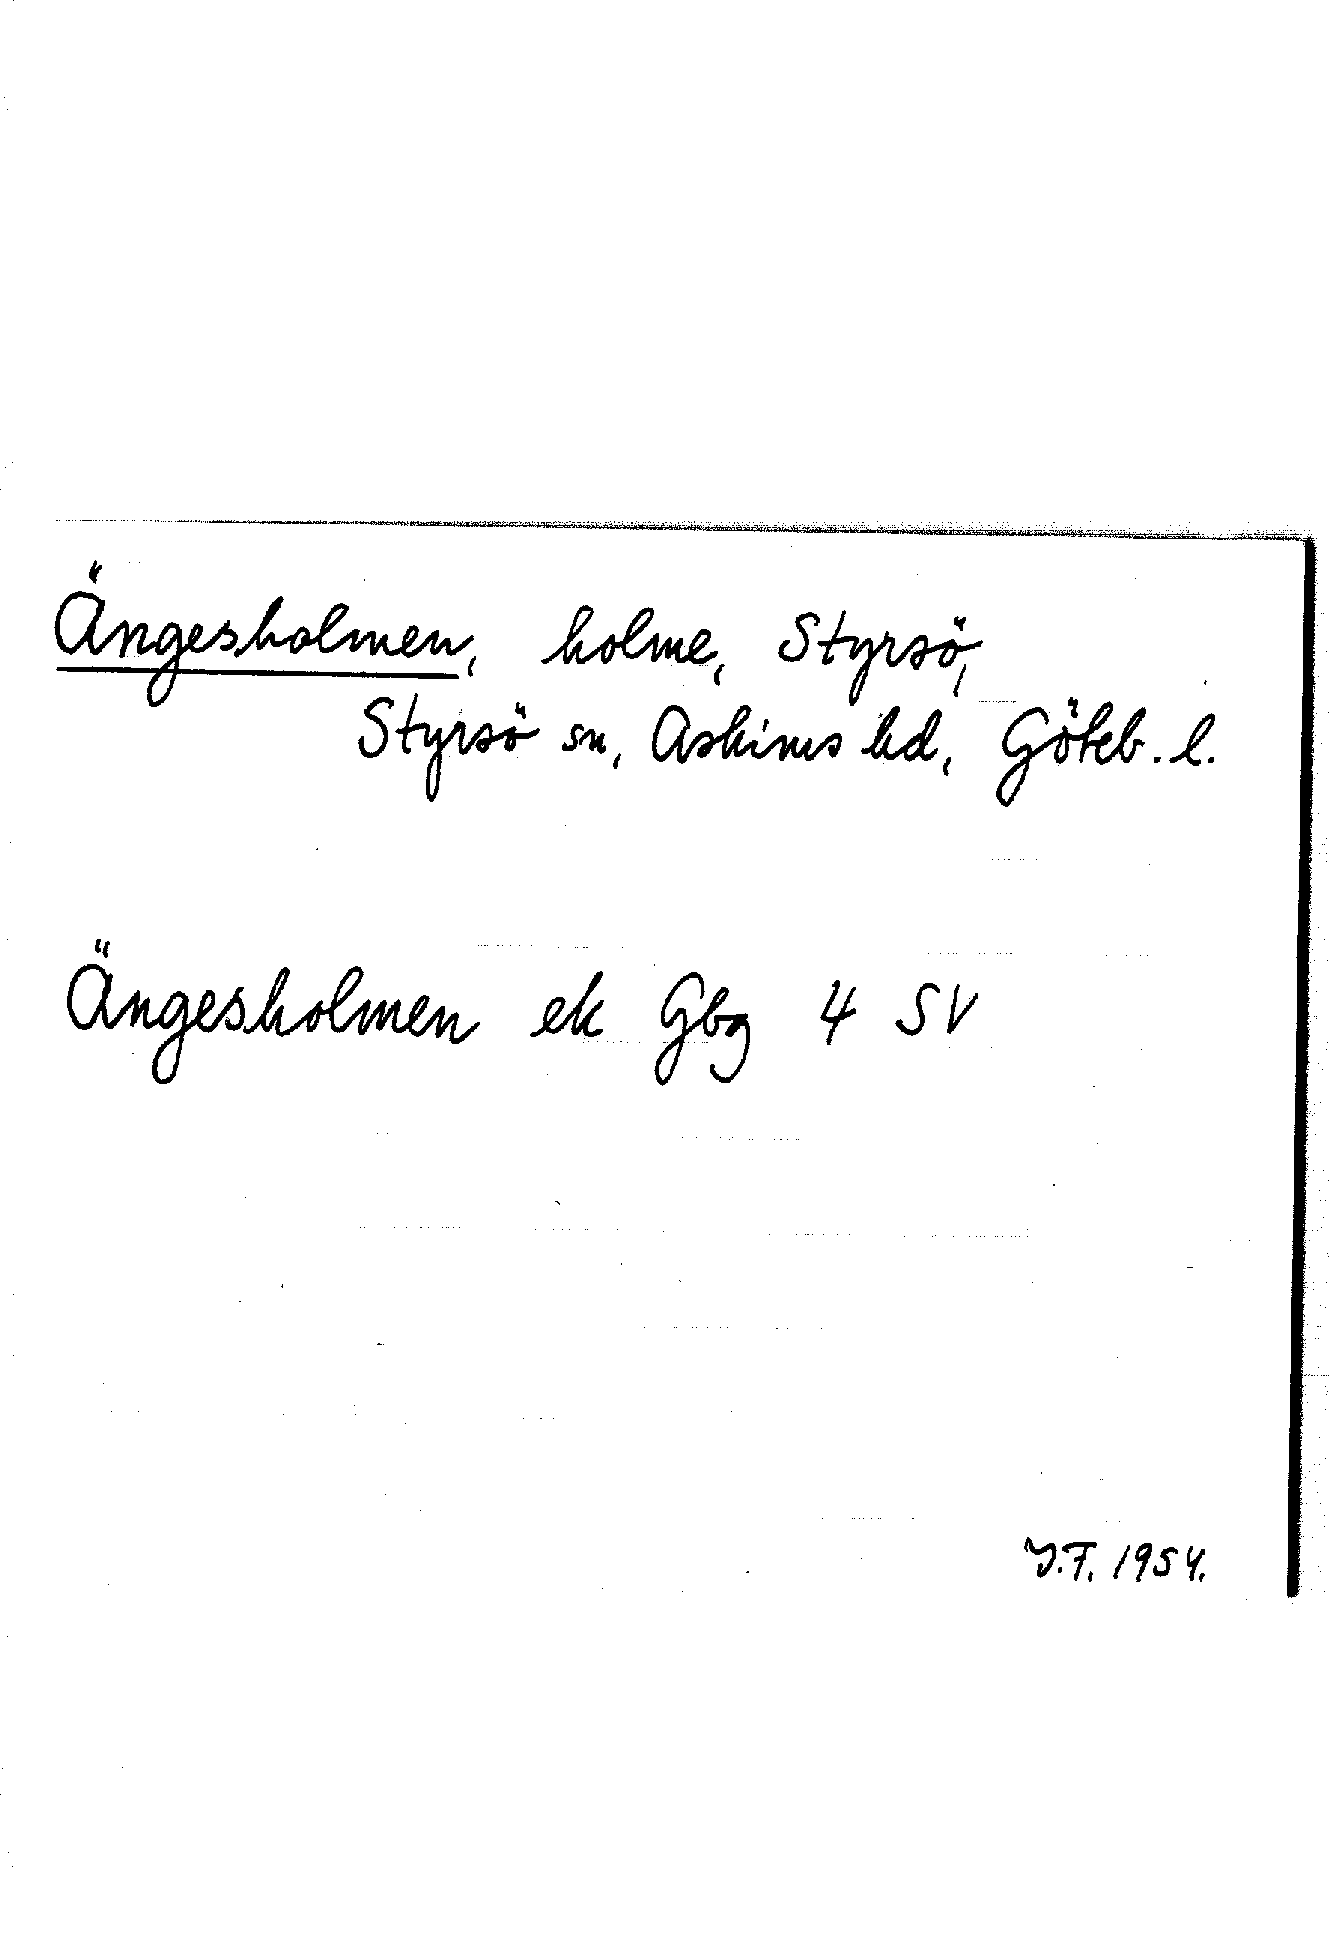 Ängesholmen, holme, Styrsö,
Styrsö sn, Askims hd, Göteb. l.
Ängesholmen ek Gbg 4 SV
J.F. 1954.